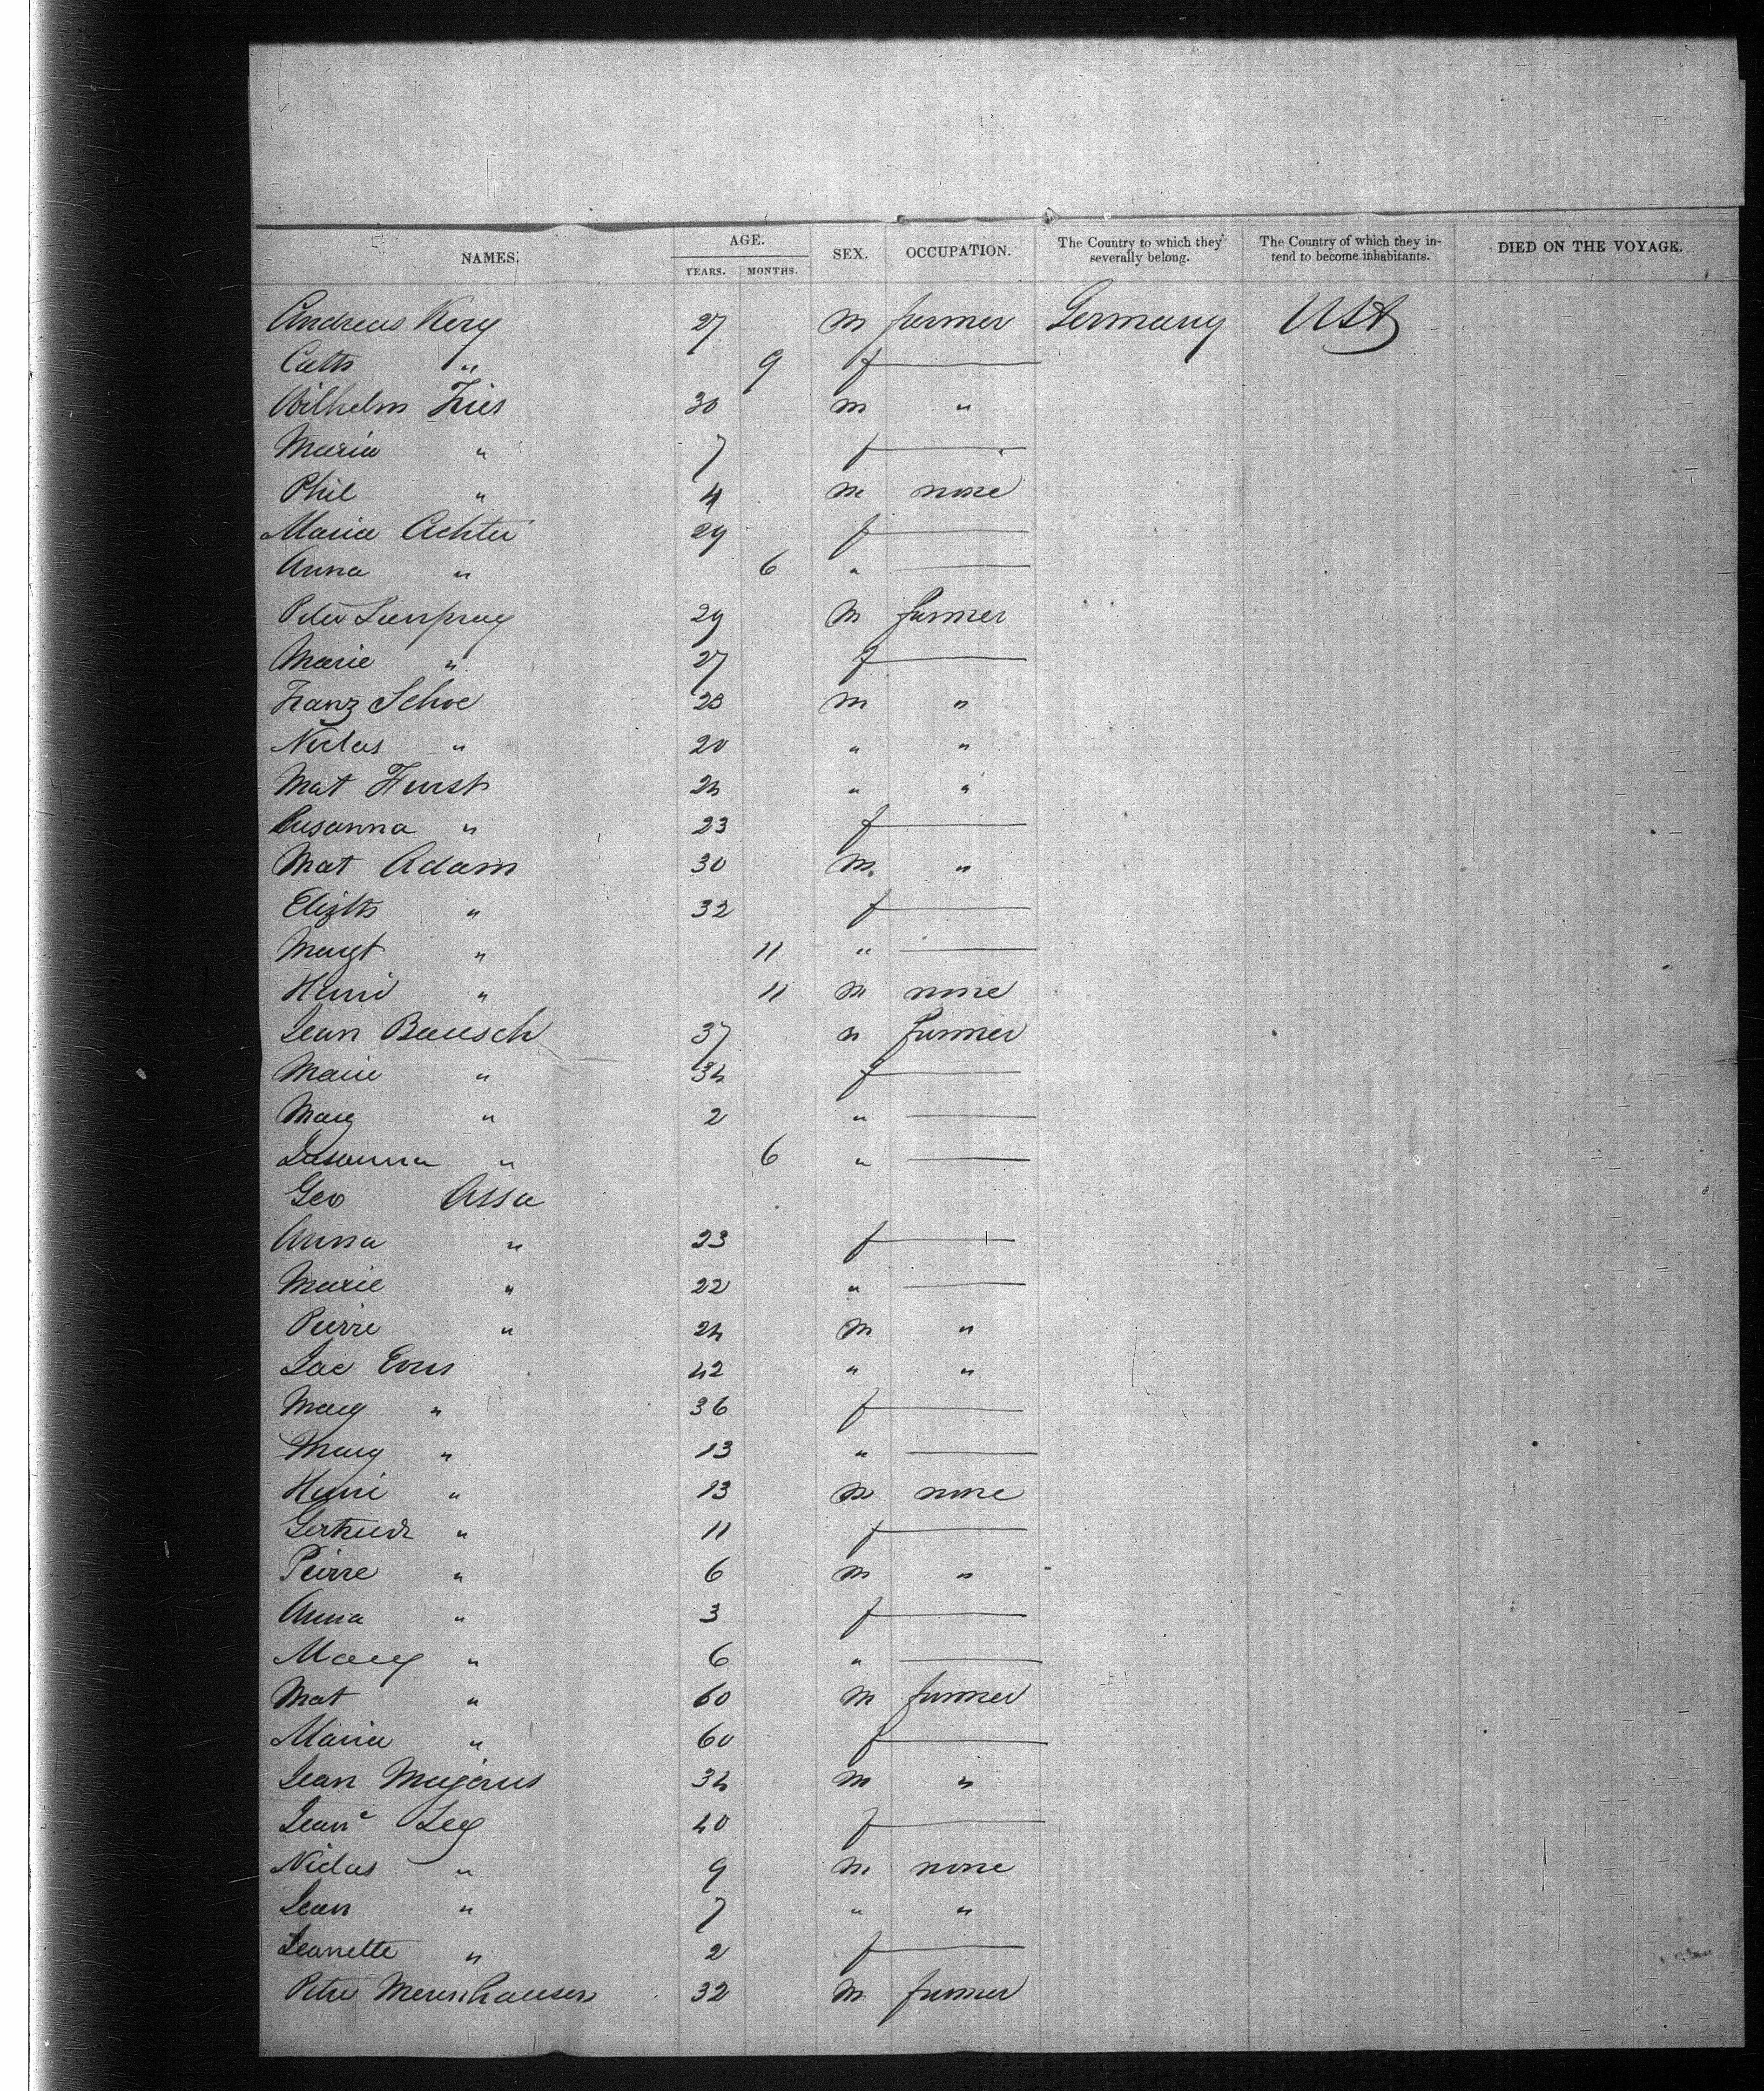 NAMES. AGE. SEX. OCCUPATION. The Country to which they severally belong. The Country of which they intend to become inhabitants. DIED ON THE VOYAGE.
YEARS. MONTHS.
Andreas Kery 27 m farmer Germany USA
Cath " 9 f
Wilhelm Fries 30 m "
Maria " 7 f
Phil " 4 m none
Maria Achter 29 f
Anna " 6 "
Peter 29 m farmer
Marie " 27 f
Franz Schoe 28 m "
Niclas " 20 " "
Mat Hurst 24 " "
Susanna " 23 f
Mat Adam 30 m "
Elizth " 32 f
Margt " 11 "
Henri " 11 m none
Jean Bausch 37 " farmer
Marie " 34 f
Marg " 2 "
Susanna " 6 "
Geo Assa
Anna " 23 f
Marie " 22 "
Pierre " 24 m "
Jac Evers 42 " "
Marg " 36 f
Marg " 13 "
Henri " 13 m none
Gertrude " 11 f
Pierre " 6 m "
Anna " 3 f
Marg " 6 "
Mat " 60 m farmer
Maria " 60 f
Jean Majerus 34 m "
Jeane Ley 40 f
Niclas " 9 m none
Jean " 7 " "
Jeanette " 2 f
Peter Merenhausen 32 m farmer